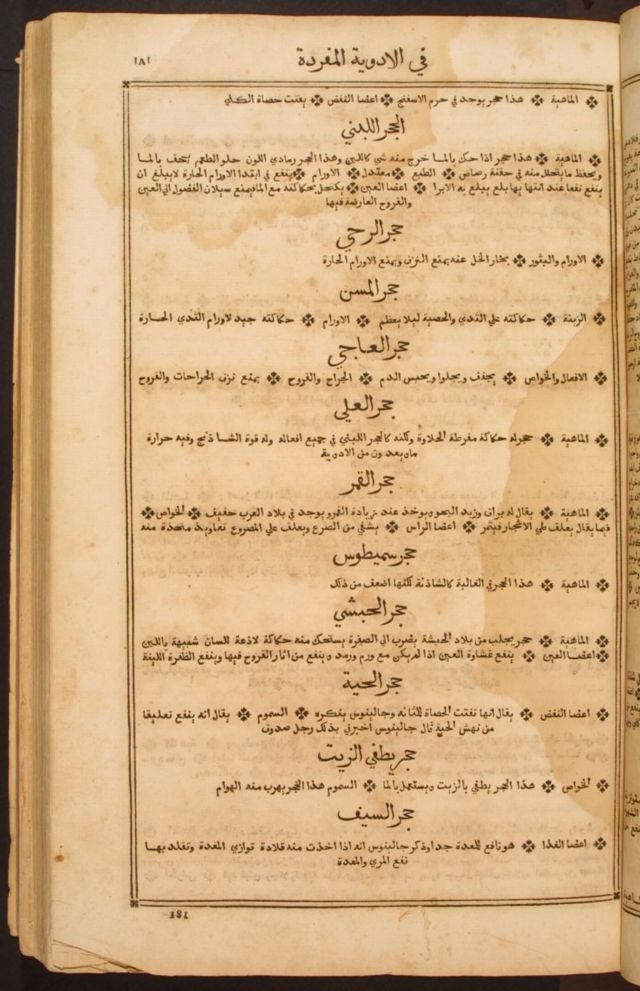 في الادوية المفردة ١٨١
الماهية هذا حجر يوجد في جرم الاسفنج اعضا النفض يفتت حصاة الكلي
الحجر اللبني
الماهية هذا حجر اذا حك بالما خرج منه شي كاللبن وهذا الحجر رمادي اللون حلو الطعم يسحق بالما
ويحفظ ما يتحلل منه في حقنة رصاص الطبع معتدل الاورام ينفع في ابتدا الاورام الحارة لا يبلغ ان
ينفع نفعا عند انتهايها بلغ يبلغ به الابرا اعضا العين يكتحل بحكاكته مع الما فيمنع سيلان الفضول الي العين
والقروح العارضة فيها
حجر الرحي
الاورام والبثور بخار الخل عنه يمنع النزف ويمنع الاورام الحارة
حجر المسن
الزينة حكاكته علي الثدي والخصية ليلا يعظم الاورام حكاكته جيد لاورام الثدي الحارة
حجر العاجي
الافعال والخواص يجفف ويجلوا ويحبس الدم الجراح والقروح يمنع نزف الجراحات والقروح
حجر العلي
الماهية حجر له حكاكة مفرطة الحلاوة ولكنه كالحجر اللبني في جميع افعاله وله قوة الشاذنج وفيه حرارة
ما
حجر القمر
الماهية يقال له بزاق القمر وزبد البحر يوخذ عند زيادة القمر ويوجد في بلاد العرب خفيف الخواص
فيما يقال يعلف علي الاشجار فيثمر اعضا الراس يشفي من الصرع ويعلف علي المصروع تعاويذ متخذة منه
حجر سميطوس
الماهية هذا الحجر في الغالبة كالشاذنة لكنها اضعف من ذلك
حجر الحبشي
الماهية حجر يجلب من بلاد الحبشة يضرب الي الصفرة يستحك منه حكاكة لاذعة للسان شبيهة باللبن
اعضا العين ينفع غشاوة العين اذا لم يكن مع ورم ورمد وينفع من اثار القروح فيها وينفع الظفرة اللينة
حجر الحية
اعضا النفض يقال انها تفتت الحصاة للمثانه وجالينوس ينكره السموم يقال انه ينفع تعليقا
من نهش الحية قال جالينوس اخبرني بذلك رجل صدوق
حجر يطفي الزيت
الخواص هذا الحجر يطفي بالزيت ويستعمل بالما السموم هذا الحجر يهرب منه الهوام
حجر السيف
اعضا الغذا هو نافع للمعدة جدا وذكر جالينوس انه اذا اخذت منه قلادة توازي المعدة وتقلد بها
نفع المري والمعدة
181